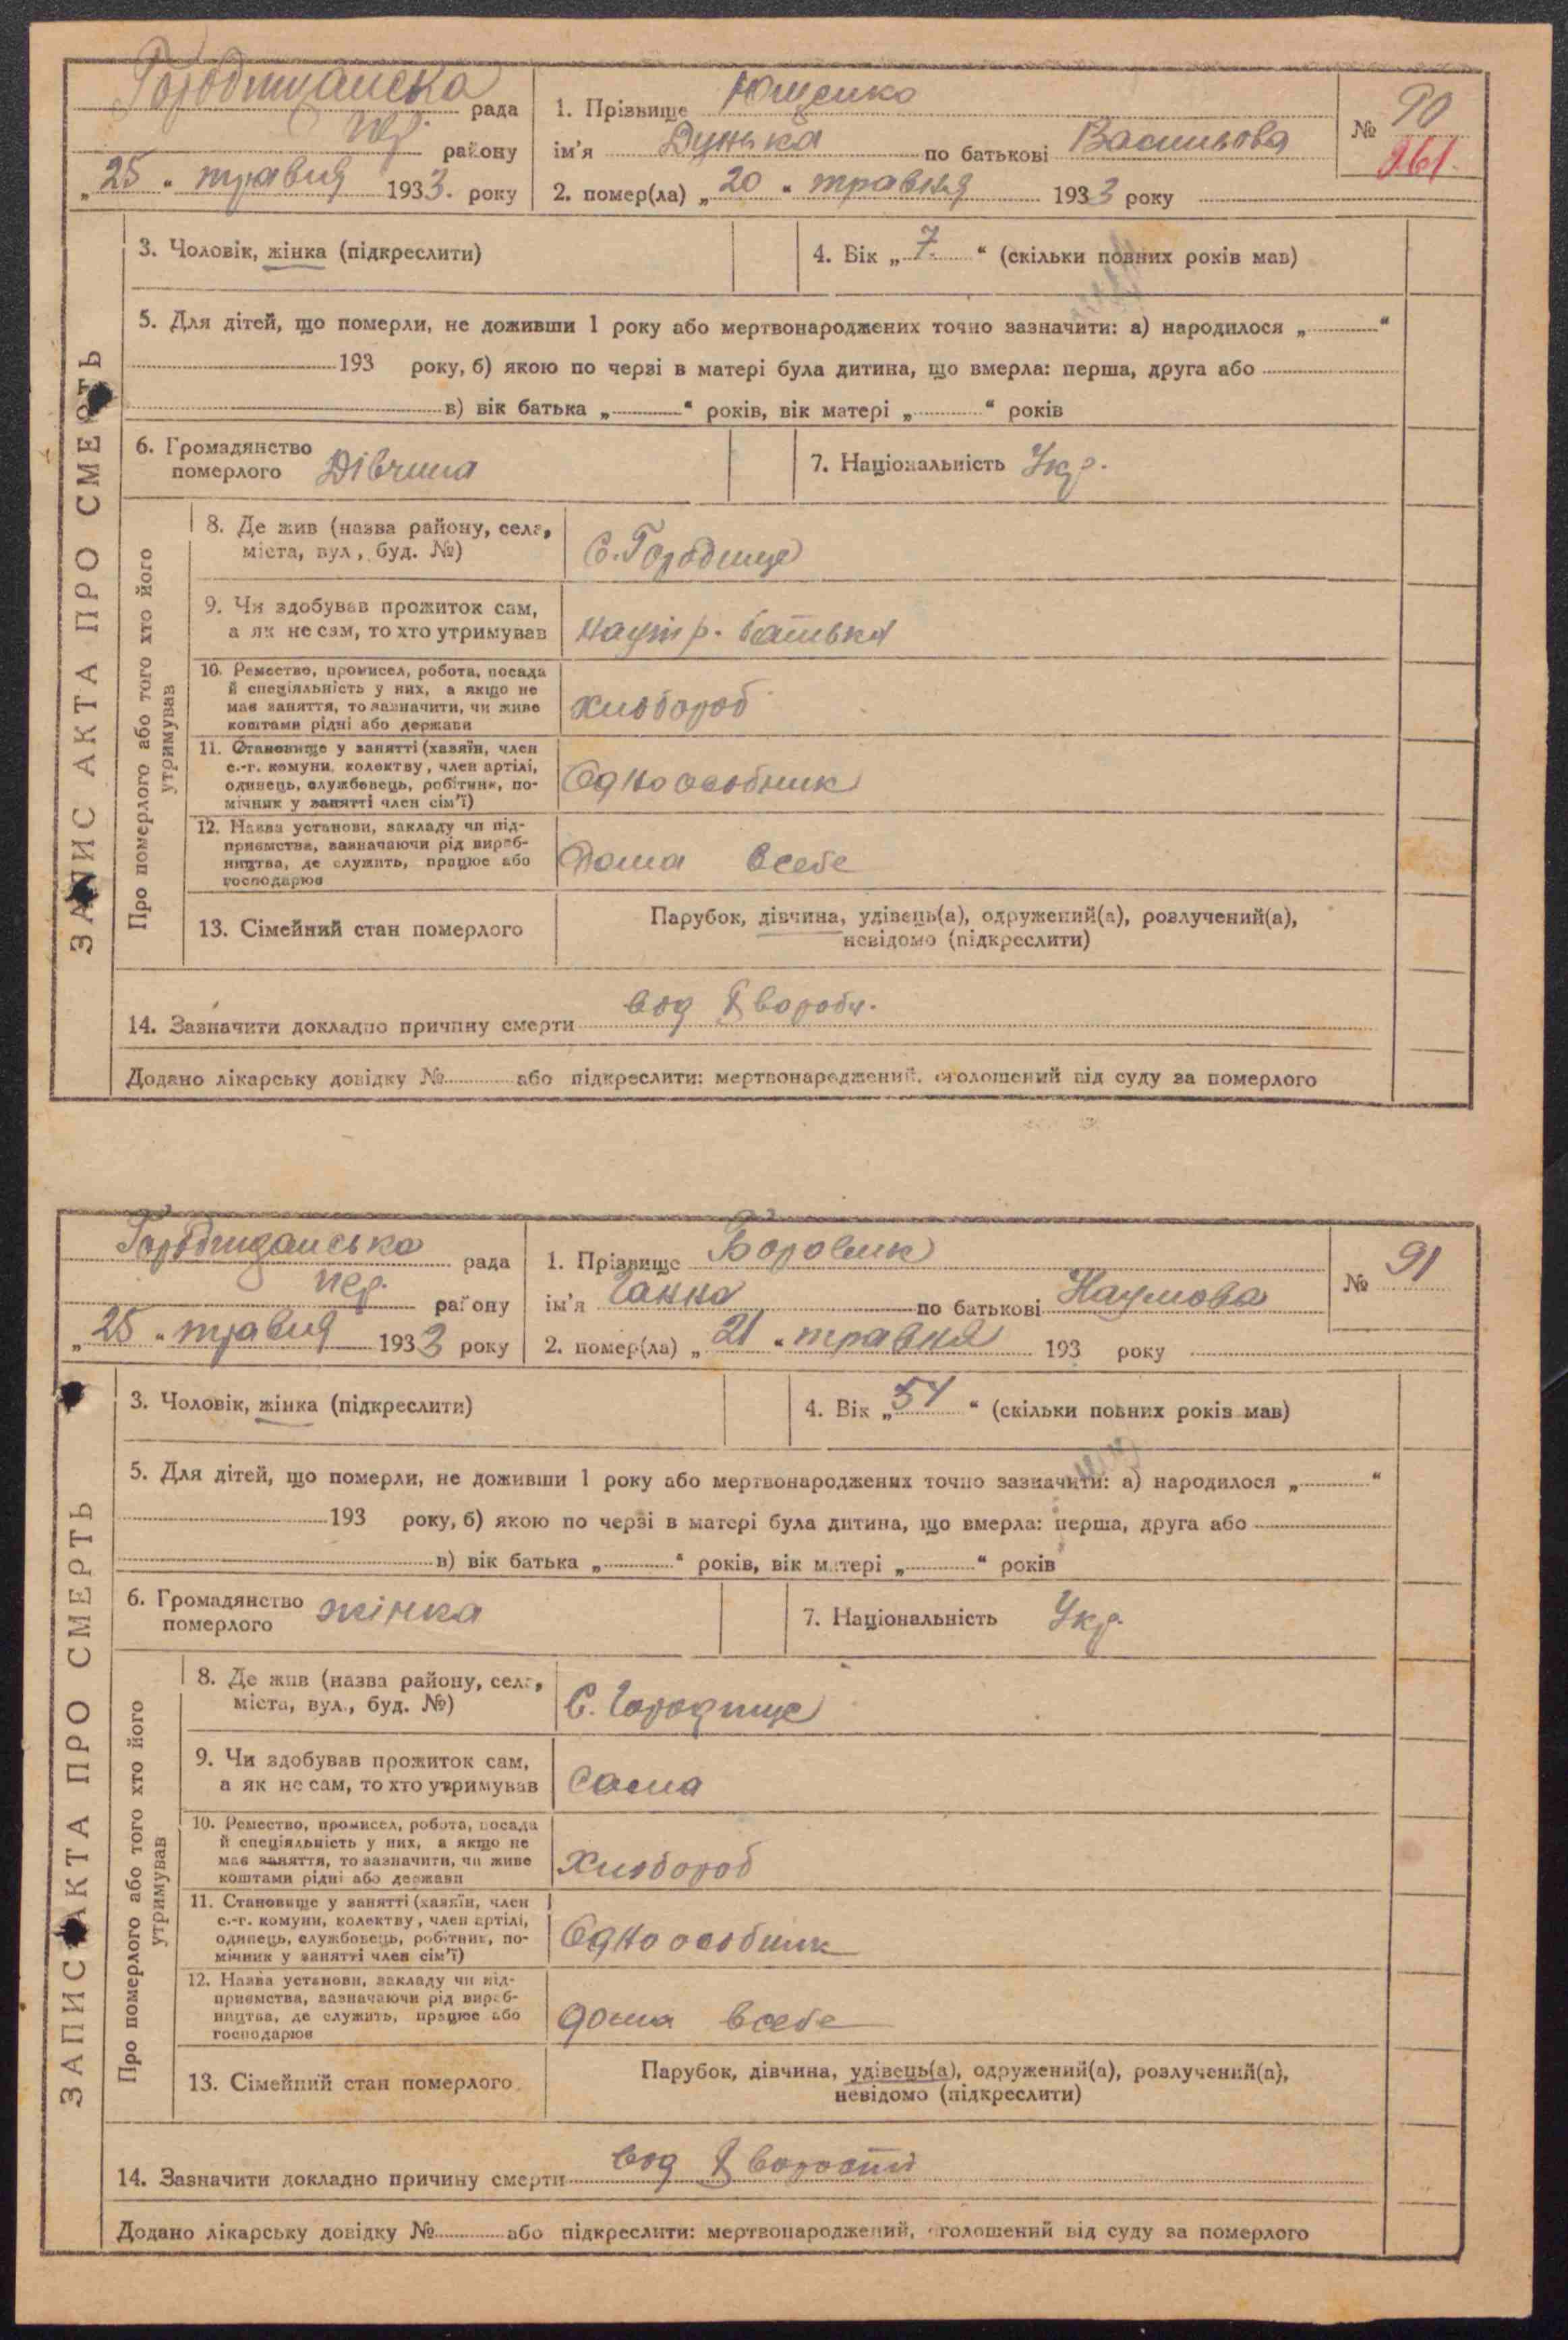 Городищанська рада
Чер. району
„25“ травня 1933. року
1. Прізвище Ющенко
ім'я Дунька по батькові Васильова
2. помер(ла) „20“ травня 1933 року
№ 90
261.
ЗАПИС АКТА ПРО СМЕРТЬ
3. Чоловік, жінка (підкреслити)
4. Вік „7.“ (скільки повних років мав)
5. Для дітей, що померли, не доживши 1 року або мертвонароджених точно зазначити: а) народилося „ “
193 року, б) якою по черзі в матері була дитина, що вмерла: перша, друга або
в) вік батька „ “ років, вік матері „ “ років
6. Громадянство
померлого Дівчина
7. Національність Укр.
Про померлого або того хто його
утримував
8. Де жив (назва району, села,
міста, вул., буд. №)
С. Городище
9. Чи здобував прожиток сам,
а як не сам, то хто утримував
батька
10. Ремество, промисел, робота, посада
й спеціяльність у них, а якщо не
має заняття, то зазначити, чи живе
коштами рідні або держави
хлібороб
11. Становище у занятті (хазяїн, член
с.-г. комуни, колектву, член артілі,
одинець, службовець, робітник, по-
мічник у занятті член сім'ї)
Одноособник
12. Назва установи, закладу чи під-
приємства, зазначаючи рід вироб-
ництва, де служить, працює або
господарює
Дома всебе
13. Сімейний стан померлого
Парубок, дівчина, удівець(а), одружений(а), розлучений(а),
невідомо (підкреслити)
14. Зазначити докладно причину смерти вод
Додано лікарську довідку № або підкреслити: мертвонароджений, оголошений від суду за померлого
Городищанська рада
Чер. району
„25“ травня 1933 року
1. Прізвище Боровик
ім'я Ганна по батькові Наумова
2. помер(ла) „21“ травня 193 року
№ 91
ЗАПИС АКТА ПРО СМЕРТЬ
3. Чоловік, жінка (підкреслити)
4. Вік „54“ (скільки повних років мав)
5. Для дітей, що померли, не доживши 1 року або мертвонароджених точно зазначити: а) народилося „ “
193 року, б) якою по черзі в матері була дитина, що вмерла: перша, друга або
в) вік батька „ “ років, вік матері „ “ років
6. Громадянство
померлого жінка
7. Національність Укр.
Про померлого або того хто його
утримував
8. Де жив (назва району, села,
міста, вул., буд. №)
С. Городище
9. Чи здобував прожиток сам,
а як не сам, то хто утримував
Сама
10. Ремество, промисел, робота, посада
й спеціяльність у них, а якщо не
має заняття, то зазначити, чи живе
коштами рідні або держави
Хлібороб
11. Становище у занятті (хазяїн, член
с.-г. комуни, колектву, член артілі,
одинець, службовець, робітник, по-
мічник у занятті член сім'ї)
Одноособник
12. Назва установи, закладу чи під-
приємства, зазначаючи рід вироб-
ництва, де служить, працює або
господарює
дома всебе
13. Сімейний стан померлого
Парубок, дівчина, удівець(а), одружений(а), розлучений(а),
невідомо (підкреслити)
14. Зазначити докладно причину смерти вод хворости
Додано лікарську довідку № або підкреслити: мертвонароджений, оголошений від суду за померлого